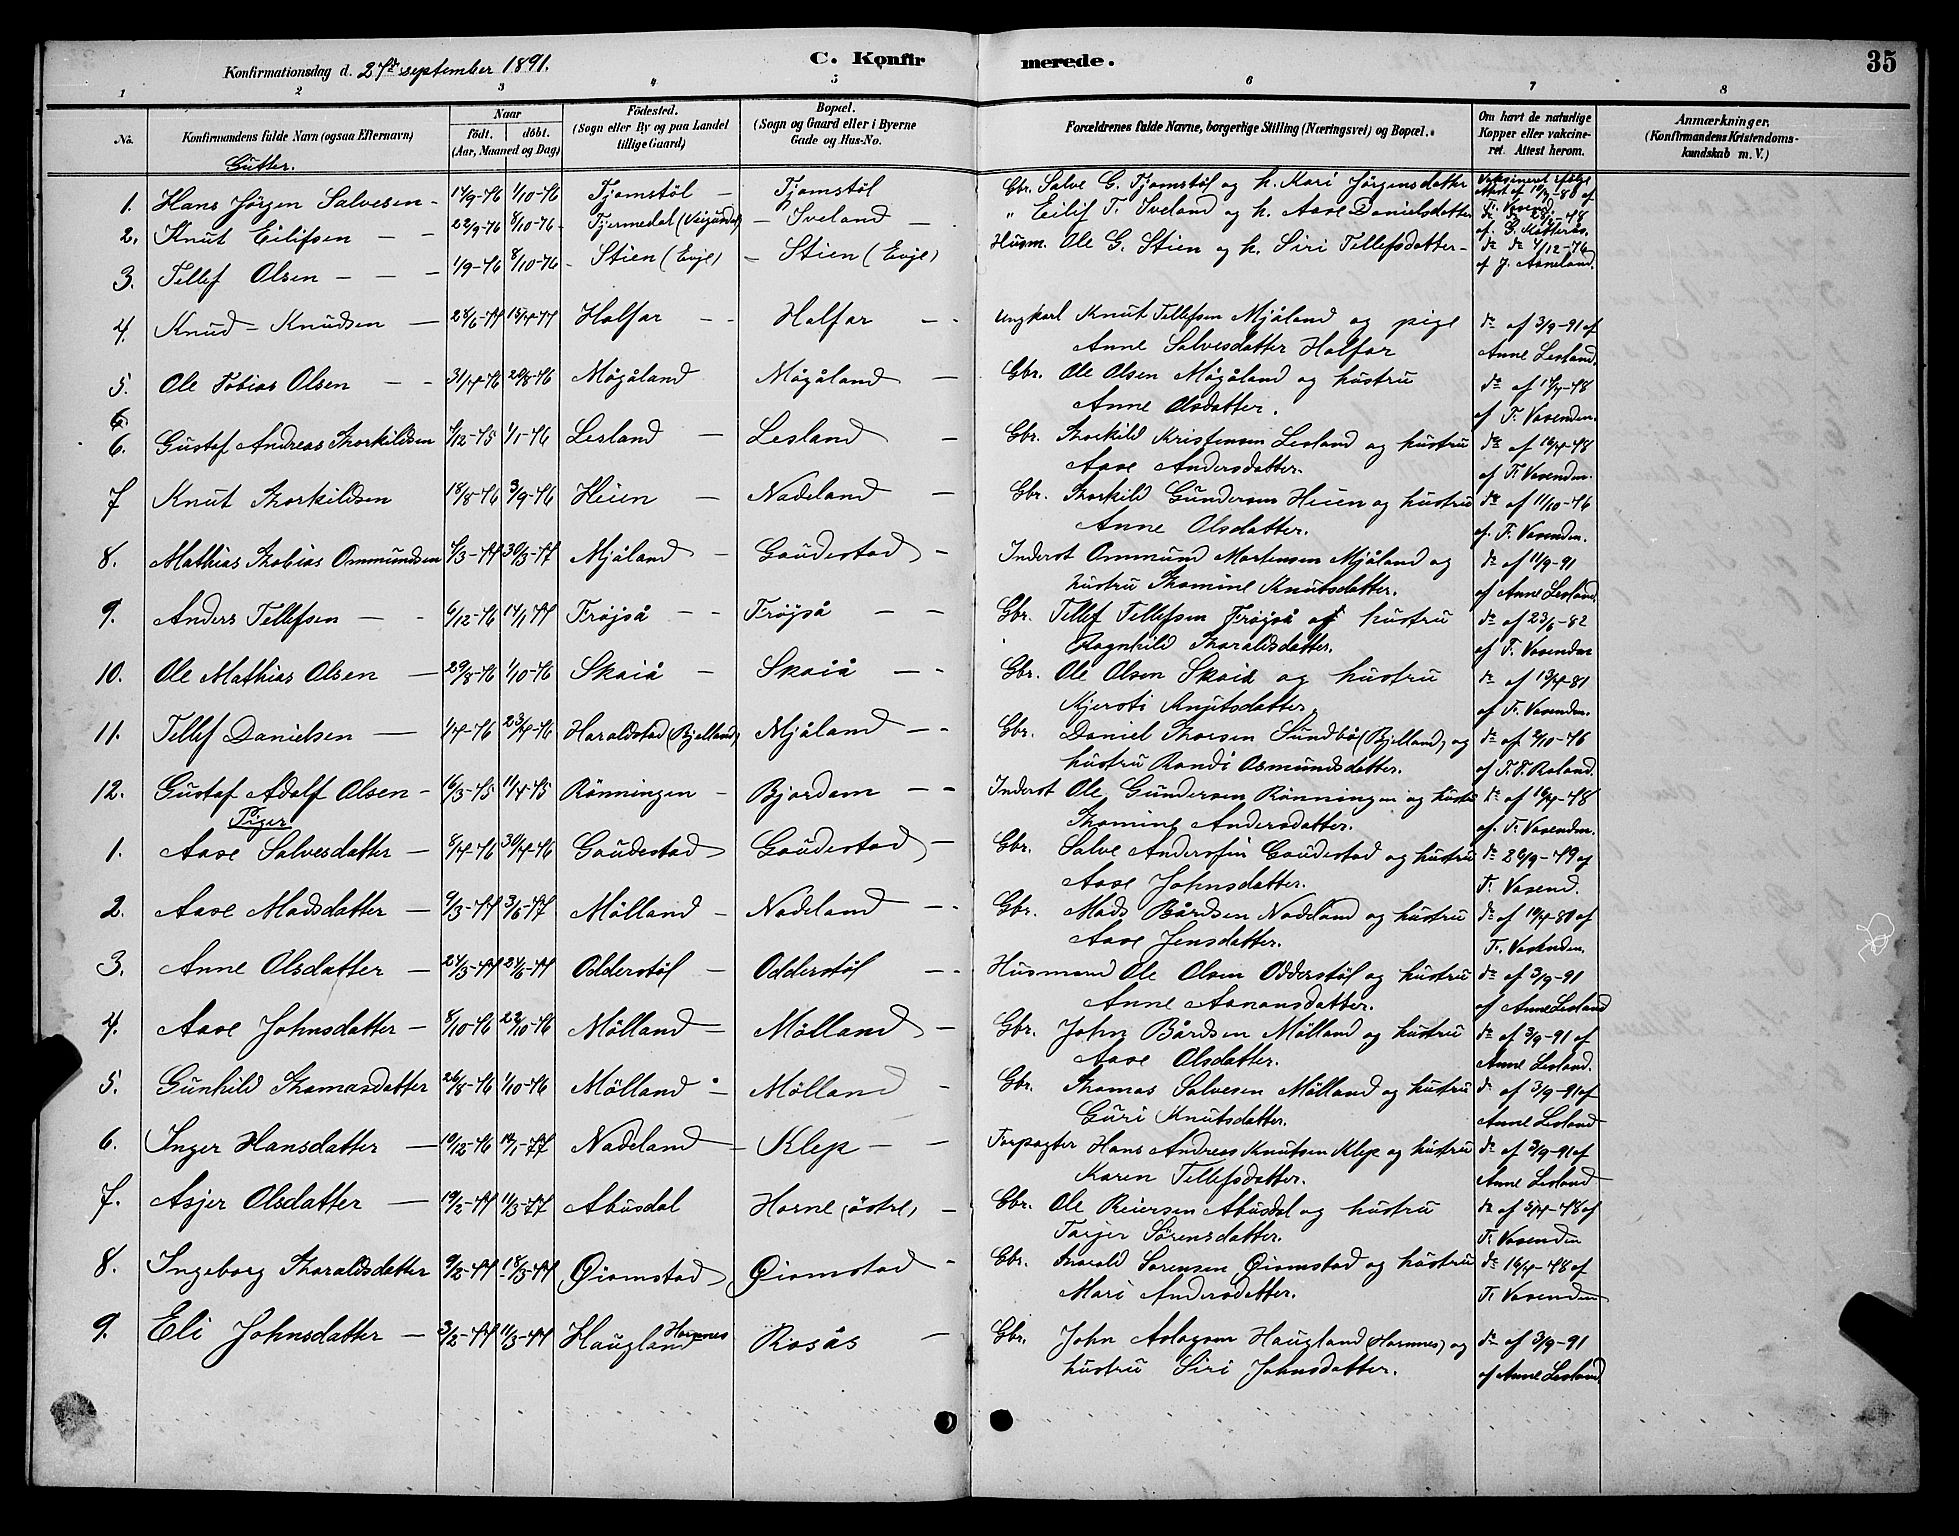 Konfirmationsdag d. 27de september 1891.
C. Konfirmerede.
35
1 2 3 4 5 6 7 8
No.
Konfirmandens fulde Navn (ogsaa Efternavn)
Naar
födt. döbt.
(Aar, Maaned og Dag)
Födested.
(Sogn eller By og paa Landet tillige Gaard)
Bopæl.
(Sogn og Gaard eller i Byerne Gade og Hus-No.
Forældrenes fulde Navne, borgerlige Stilling (Næringsvei) og Bopæl.
Om havt de naturlige Kopper eller vakcineret. Attest herom.
Anmærkninger.
(Konfirmandens Kristendomskundskab m. V.)
Gutter.
1. Hans Jörgen Salvesen - 17/9-76 1/10-76 Tjomstöl - Tjomstöl Gbr. Salve G. Tjomstöl og h. Kari Jörgensdatter
2. Knut Eilifsen - - 22/9-76 8/10-76 Tjermedal (Veigusdal) - Iveland - " Eilif T. Iveland og h. Aase Danielsdatter
3. Tellef Olsen - - - 1/9-76 8/10-76 - Stien (Evje) - Stien (Evje) Husm. Ole G. Stien og h. Siri Tellefsdatter - do do 4/12-76
af J. Aaneland.
4. Knud Knudsen - 28/6-77 15/7-77 Halfar - - Halfar - - Ungkarl Knut Tellefsen Mjåland og pige do af 3/9-91 af
Anne Salvesdatter Halfar Anne Lesland.
5. Ole Tobias Olsen - - 31/7-76 20/8-76 Mögåland Mögåland - Gbr. Ole Olsen Mögåland og hustru do af 17/7-78
Anne Olsdatter. af T. Vasenden.
6
6. Gustaf Andreas Thorkildsen 7/12-75 1/1-76 Lesland - Lesland - Gbr. Thorkild Kristensen Lesland og hustru do af 16/7-78
Aase Andersdatter. af T. Vasenden.
7 Knut Thorkildsen 18/8-76 3/9-76 Heien - Nadeland - Gbr. Thorkild Gundersen Heien og hustru do af 11/10-76
Anne Olsdatter. af. T. Vasenden.
8. Mathias Thobias Ommundsen 7/3-77 30/3-77 Mjåland - Gaudestad - Inderst Ommund Mortensen Mjåland og do af 11/9-91
hustru Thomine Knutsdatter. af Anne Lesland.
9. Anders Tellefsen - - 6/12-76 17/1 77 Fröjså - - Fröyså - - Gbr. Tellef Tellefsen Fröyså og hustru do af 23/6-82
Ragnhild Tharaldsdatter. af T. Vasenden
10. Ole Mathias Olsen - 29/8-76 1/10-76 Skaiå - Skaiå - - Gbr. Ole Olsen Skaiå og hustru do af 13/7-81
Kjersti Knutsdatter. af T. Vasenden.
11. Tellef Danielsen - 1/4-76 23/4-76 Haraldstad (Bjelland) Mjåland - - Gbr. Daniel Thorsen Sundbö (Bjelland) og do af 2/10-76
hustru Randi Osmundsdatter. af T. T. Røland.
12. Gustaf Adolf Olsen - 16/3-75 11/4-75 Rönningen - Bjordam - - Inderst Ole Gundersen Rönningen og hustru do af 16/7-78
Thomine Andersdatter. af. T. Vasenden.
Piger
1. Aase Salvesdatter - 8/4-76 30/4-76 Gaudestad Gaudestad - Gbr. Salve Andersen Gaudestad og hustru do 26/9-79 af
Aase Johnsdatter. T. Vasend.
2. Aase Madsdatter - 9/3-77 3/6-77 Mölland - Nadeland - - Gbr. Mads Bårdsen Nadeland og hustru do af 10/7-80 af
Aase Jensdatter. T. Vasenden.
3. Anne Olsdatter - 24/3-77 27/5-77 Odderstöl - Odderstöl - - Husmand Ole Olsen Odderstöl og hustru do af 3/9-91
Anne Aanonsdatter. af Anne Lesland
4. Aase Johnsdatter - 8/10-76 22/10-76 Mölland - Mölland - Gbr. John Bårdsen Mölland og hustru do af 3/9-91 af
Aase Olsdatter. Anne Lesland.
5. Gunhild Thomasdatter 26/8-76 1/10-76 Mölland - Mölland - Gbr. Thomas Salvesen Mölland og hustru do af 3/9-91 af
Guri Knutsdatter. Anne Lesland
6. Inger Hansdatter - 10/12-76 14/1-77 Nadeland - Klep - - Forpagter Hans Andreas Knutsen Klep og hustru do af 3/9-91 af
Karen Tellefsdatter. Anne Lesland
7. Asjer Olsdatter - 19/2-77 11/3-77 Abusdal Horne (östre) - Gbr. Ole Reiersen Abusdal og hustru do af 5/7-78 af
Tarjer Sörensdatter. T. Vasenden
8. Ingeborg Tharaldsdatter 9/2-77 18/3-77 Öiomstad Öiomstad - Gbr. Tharald Sørensen Öiomstad og hustru do 16/7-78 af
Mari Andersdatter. T. Vasenden
9. Eli Johnsdatter - 3/2-77 11/3-77 Haugland Hornnes Rosås - Gbr. John Aslagsen Haugland (Hornnes) og do af 3/9-91
hustru Siri Johnsdatter. af Anne Lesland.